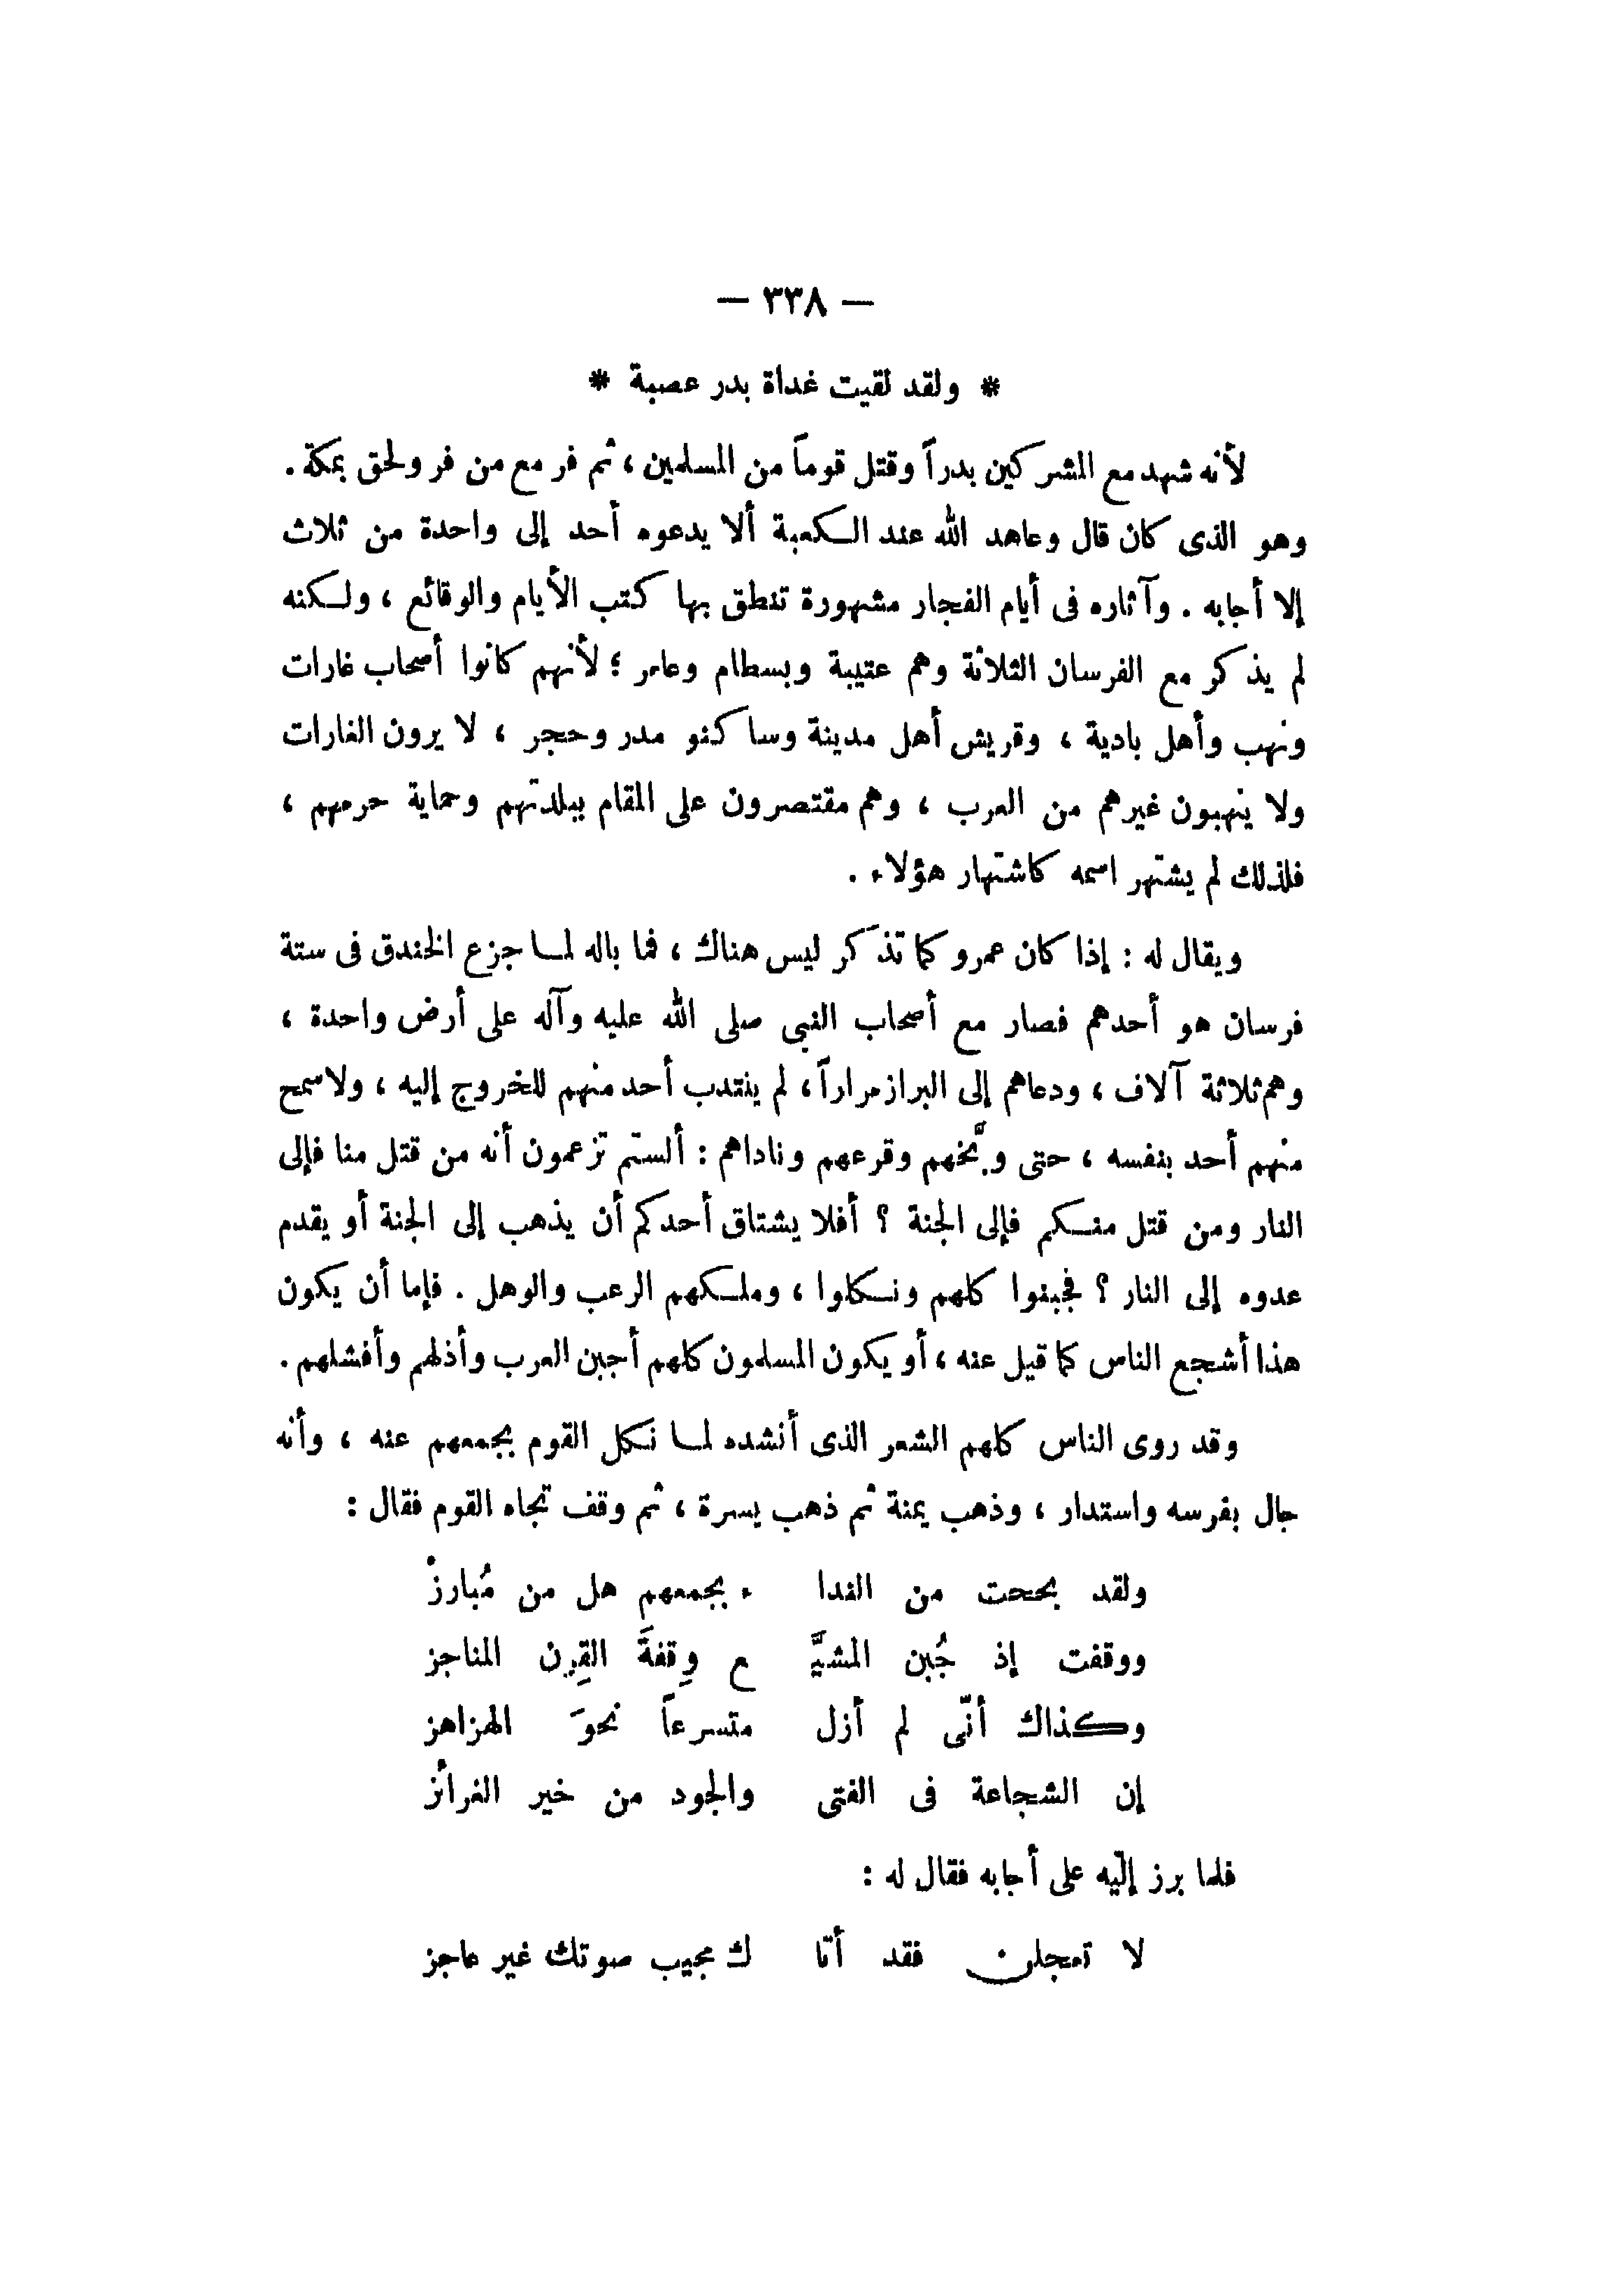 — ٣٣٨ —
* ولقد لقيت غداة بدر عصبة *
لأنه شهد مع المشركين بدراً وقتل قوماً من المسلمين ، ثم فر مع من فر ولحق بمكة .
وهو الذى كان قال وعاهد الله عند الكعبة ألا يدعوه أحد إلى واحدة من ثلاث
إلا أجابه . وآثاره فى أيام الفجار مشهورة تنطق بها كتب الأيام والوقائع ، ولكنه
لم يذكر مع الفرسان الثلاثة وهم عتيبة وبسطام وعامر ؛ لأنهم كانوا أصحاب غارات
ونهب وأهل بادية ، وقريش أهل مدينة وساكنو مدر وحجر ، لا يرون الغارات
ولا ينهبون غيرهم من العرب ، وهم مقتصرون على المقام ببلدتهم وحماية حرمهم ،
فلذلك لم يشتهر اسمه كاشتهار هؤلاء .
ويقال له : إذا كان عمرو كما تذكر ليس هناك ، فما باله لما جزع الخندق فى ستة
فرسان هو أحدهم فصار مع أصحاب النبى صلى الله عليه وآله على أرض واحدة ،
وهم ثلاثة آلاف ، ودعاهم إلى البراز مراراً ، لم ينتدب أحد منهم للخروج إليه ، ولا سمح
منهم أحد بنفسه ، حتى وبَّخهم وقرعهم وناداهم : ألستم تزعمون أنه من قتل منا فإلى
النار ومن قتل منكم فإلى الجنة ؟ أفلا يشتاق أحدكم أن يذهب إلى الجنة أو يقدم
عدوه إلى النار ؟ فجبنوا كلهم ونكلوا ، وملكهم الرعب والوهل . فإما أن يكون
هذا أشجع الناس كما قيل عنه ، أو يكون المسلمون كلهم أجبن العرب وأذلهم وأفشلهم .
وقد روى الناس كلهم الشعر الذى أنشده لما نكل القوم بجمعهم عنه ، وأنه
جال بفرسه واستدار ، وذهب يمنة ثم ذهب يسرة ، ثم وقف تجاه القوم فقال :
ولقد بححت من الندا ء بجمعهم هل من مُبارزْ
ووقفت إذ جُبن المشيَّ ع وِقفةَ القِرن المناجز
وكذاك أنّى لم أزل متسرعاً نحوَ الهزاهز
إن الشجاعة فى الفتى والجود من خير الغرائز
فلما برز إليه على أجابه فقال له :
لا تعجلن فقد أتا ك مجيب صوتك غير عاجز